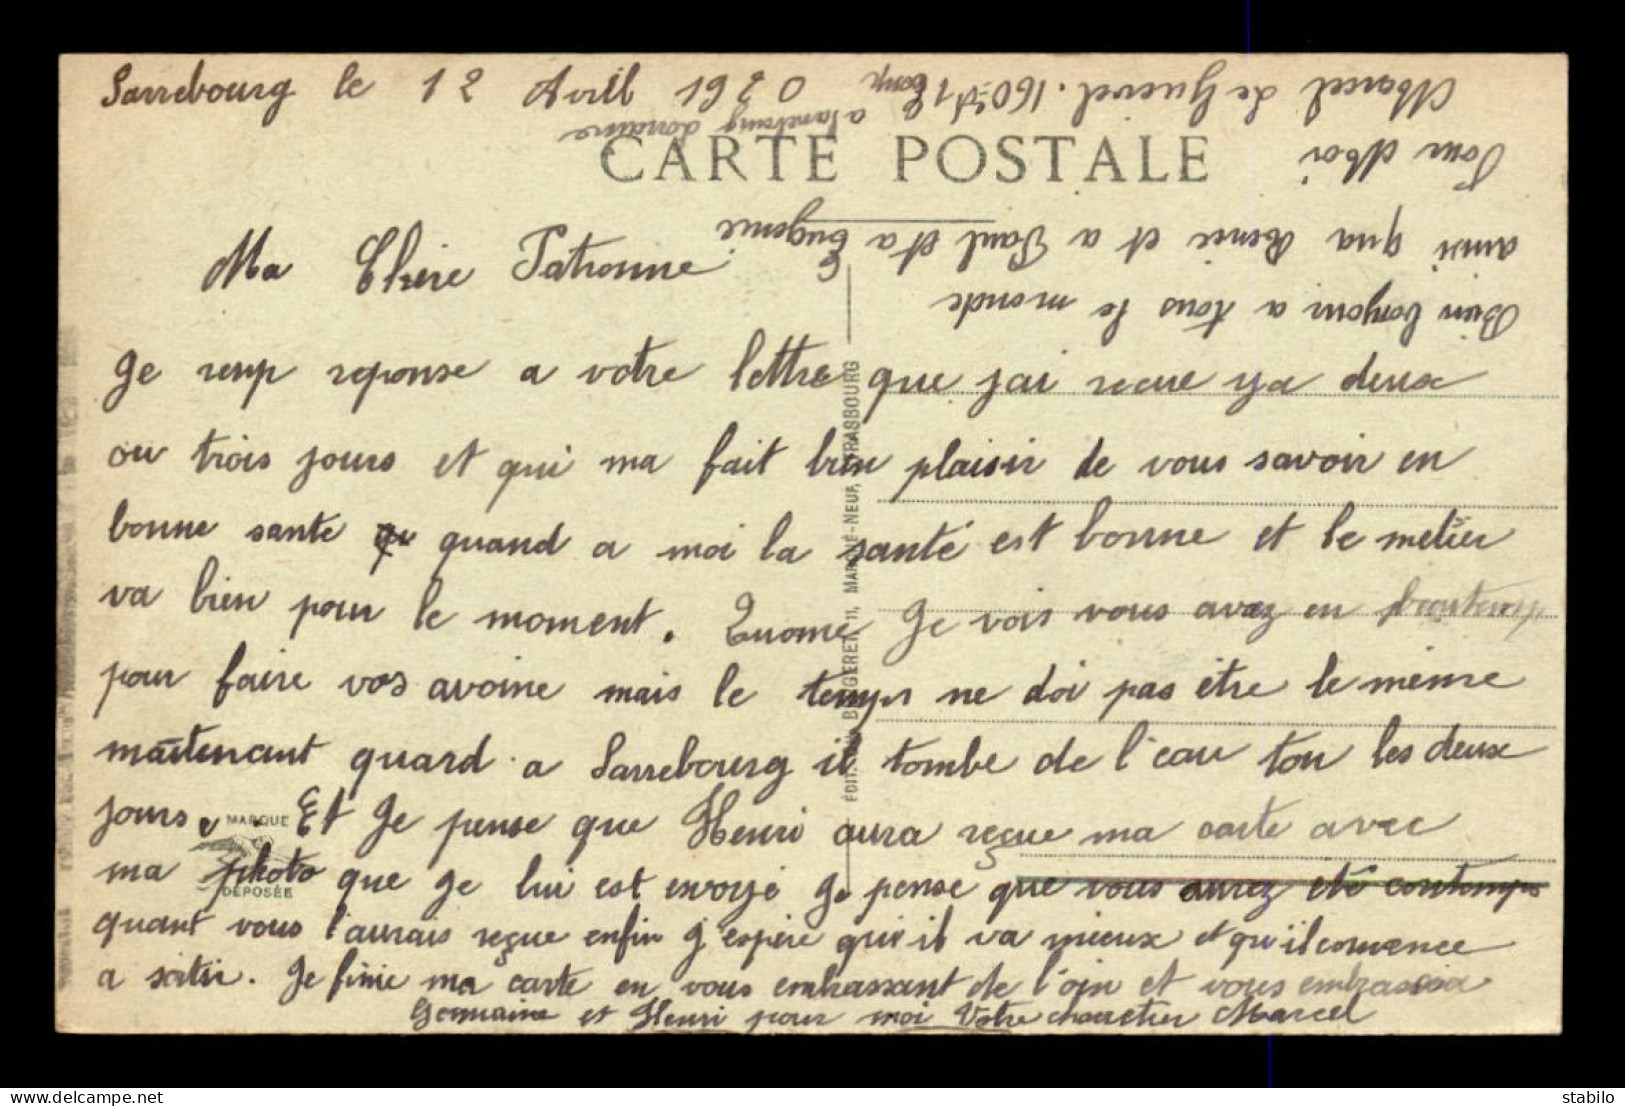 Sarrebourg le 12 Avril 1920
CARTE POSTALE
Ma Chere Patronne
Je renp reponse a votre lettre que jai recue ya deux
ou trois jours et qui ma fait bien plaisir de vous savoir en
bonne sante qu quand a moi la santé est bonne et le métier
va bien pour le moment. Je vois vous avez en
pour faire vos avoine mais le temps ne doi pas être le même
maitenant quand a Sarrebourg il tombe de l'eau tou les deux
jours. Et Je pense que Henri aura reçue ma carte avec
ma photo que je lui est envoyé Je pense que vous aurez eté contemps
quant vous l'aurais reçue enfin J'espère qu'il va mieux et qu'il comence
a sortir. Je finie ma carte en vous embrassant de l'oin et vous
Germaine et Henri pour moi Votre charretier Marcel
Bien bonjour a tous le monde
ainsi qua René et a Paul et a Eugenie
Pour Moi
Marcel 160 Comp
a Sarrebourg Lorraine
MARQUE
DÉPOSÉE
MARNE-NEUF, STRASBOURG